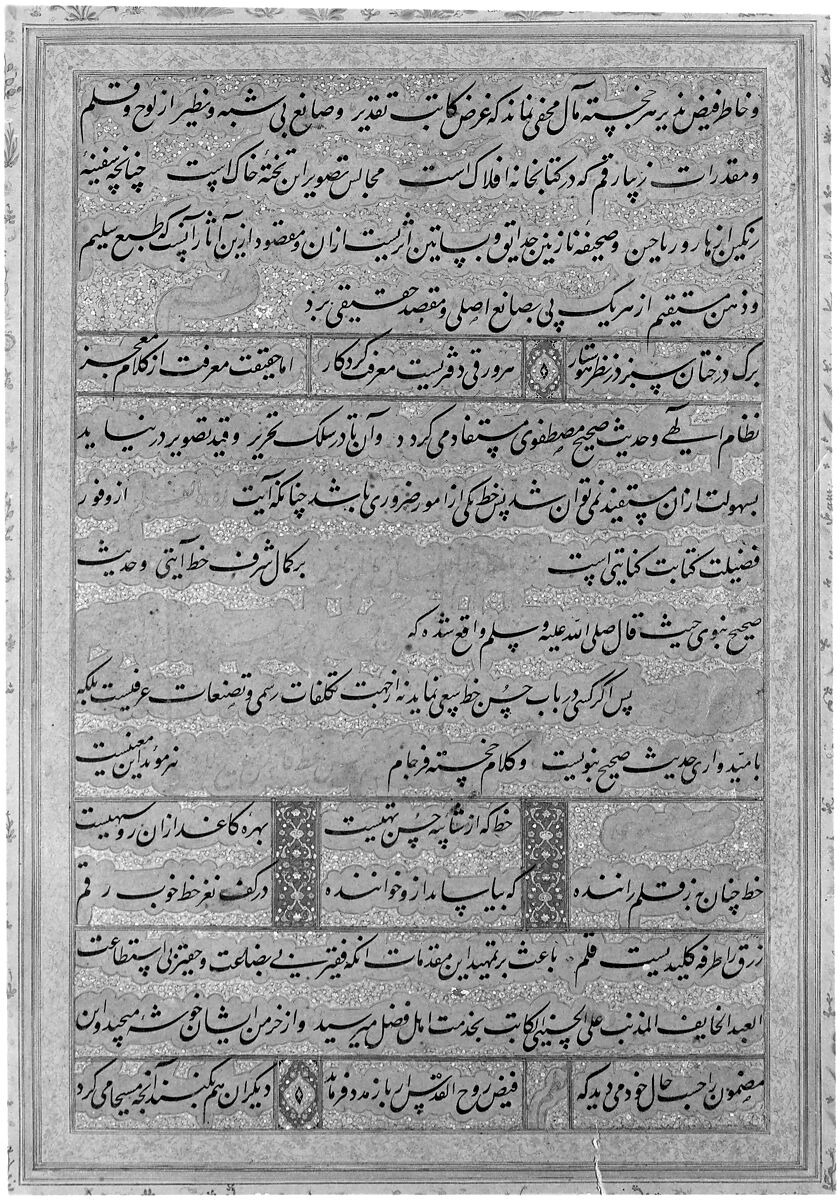 و خاطر فیض پذیر هر خجسته مآل مخفی نماند که غرض کاتب تقدیر و صانع بی شبه و نظیر از لوح و قلم
و مقدرات زیبا رقم که در کتابخانه افلاک است مجالس تصویر این تخته خاک است چنانچه سفینه
رنگین ازهار و ریاحین و صحیفه نازنین حدایق و بساتین اثریست از ان و مقصود ازین آثار آنست که طبع سلیم
و ذهن مستقیم از هر یک پی بصانع اصلی و مقصد حقیقی برد
برک درختان سبز در نظر هوشیار هر ورقی دفتریست معرفت کردکار اما حقیقت معرفت از کلام معجز
نظام الهی و حدیث صحیح مصطفوی مستفاد می کردد و آن تا در سلک تحریر و قید تصویر در نیاید
بسهولت ازان مستفید نمی توان شد پس خط یکی از امور ضروری باشد چنانکه آیت از وفور
فضیلت کتابت کنایتی است بر کمال شرف خط آیتی و حدیث
صحیح نبوی حیث قال صلی الله علیه و سلم واقع شده که
پس اکر کسی در باب حسن خط سعی نماید نه از جهت تکلفات رسمی و تصنعات عرفیست بلکه
بامیدواری حدیث صحیح نبویست و کلام خجسته فرجام نیز موید این معنیست
خط که از شایبه حسن تهیست بهره کاغذ ازان روسیهیست
خط چنان به ز قلم راننده که بیاساید ازو خواننده در کف نغز خط خوب رقم
زرق را طرفه کلیدیست قلم باعث بر تمهید این مقدمات آنکه فقیر بی بضاعت و حقیر بی استطاعت
العبد الخایف المذنب علی الحسینی الکاتب بخدمت اهل فضل میرسید و از خرمن ایشان خوشه میچید و این
مضمون را حسب حال خود می دید که فیض روح القدس ار باز مدد فرماید دیکران هم بکنند آنچه مسیحا می کرد